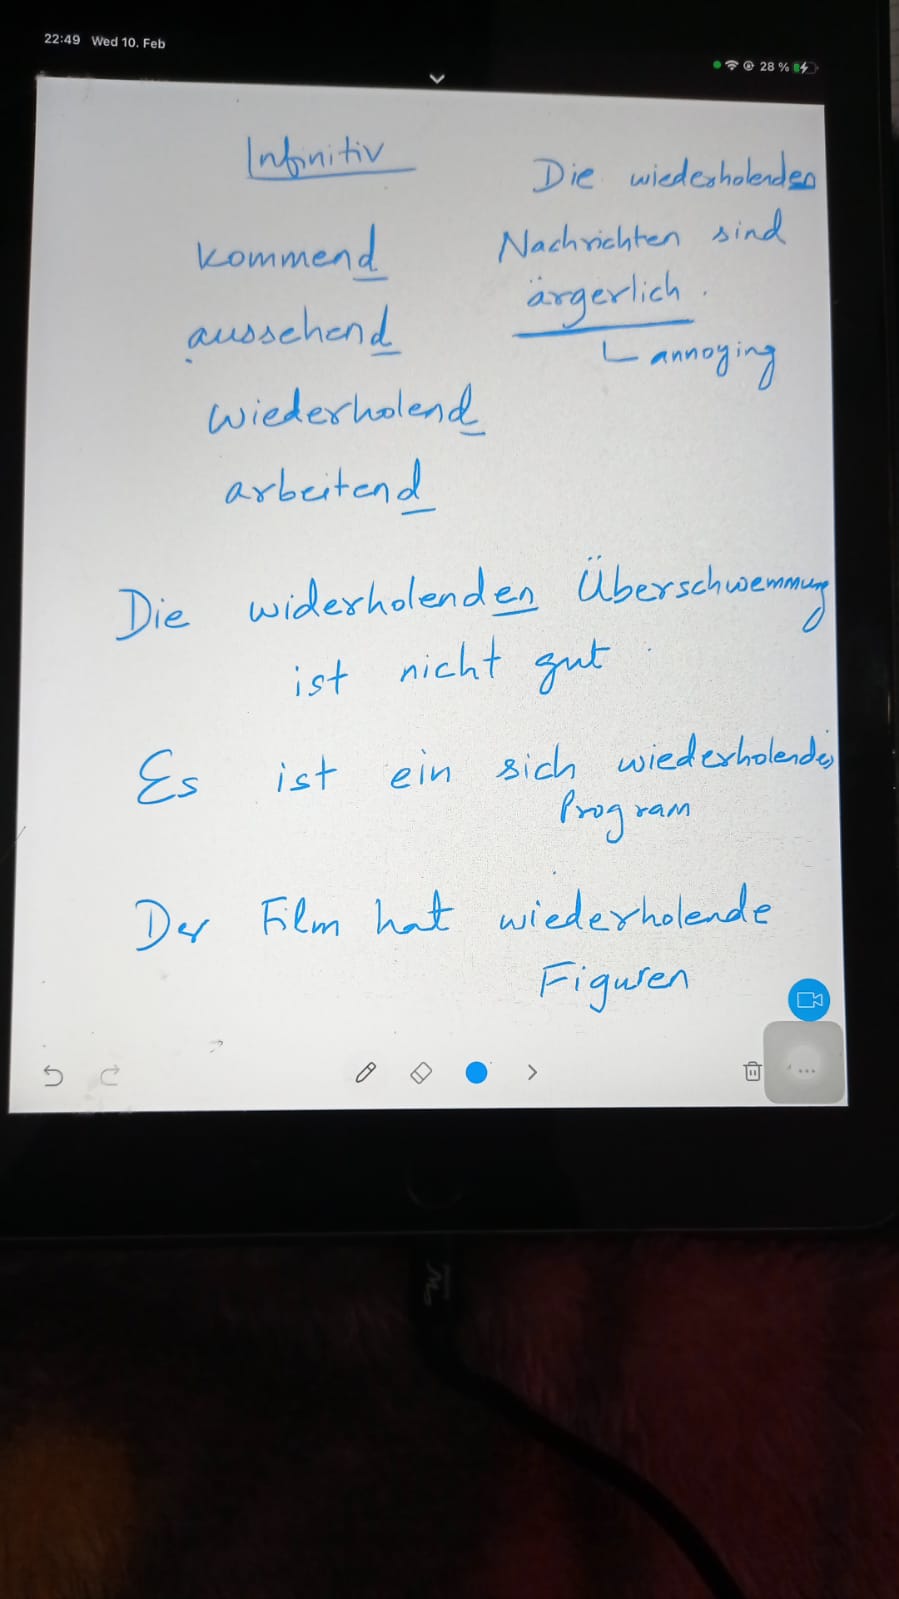 22:49 Wed 10. Feb
28 %
Infinitiv
kommend
aussehend
wiederholend
arbeitend
Die wiederholenden
Nachrichten sind
ärgerlich.
annoying
Die widerholenden Überschwemmung
ist nicht gut
Es ist ein sich wiederholendes
Program
Der Film hat wiederholende
Figuren